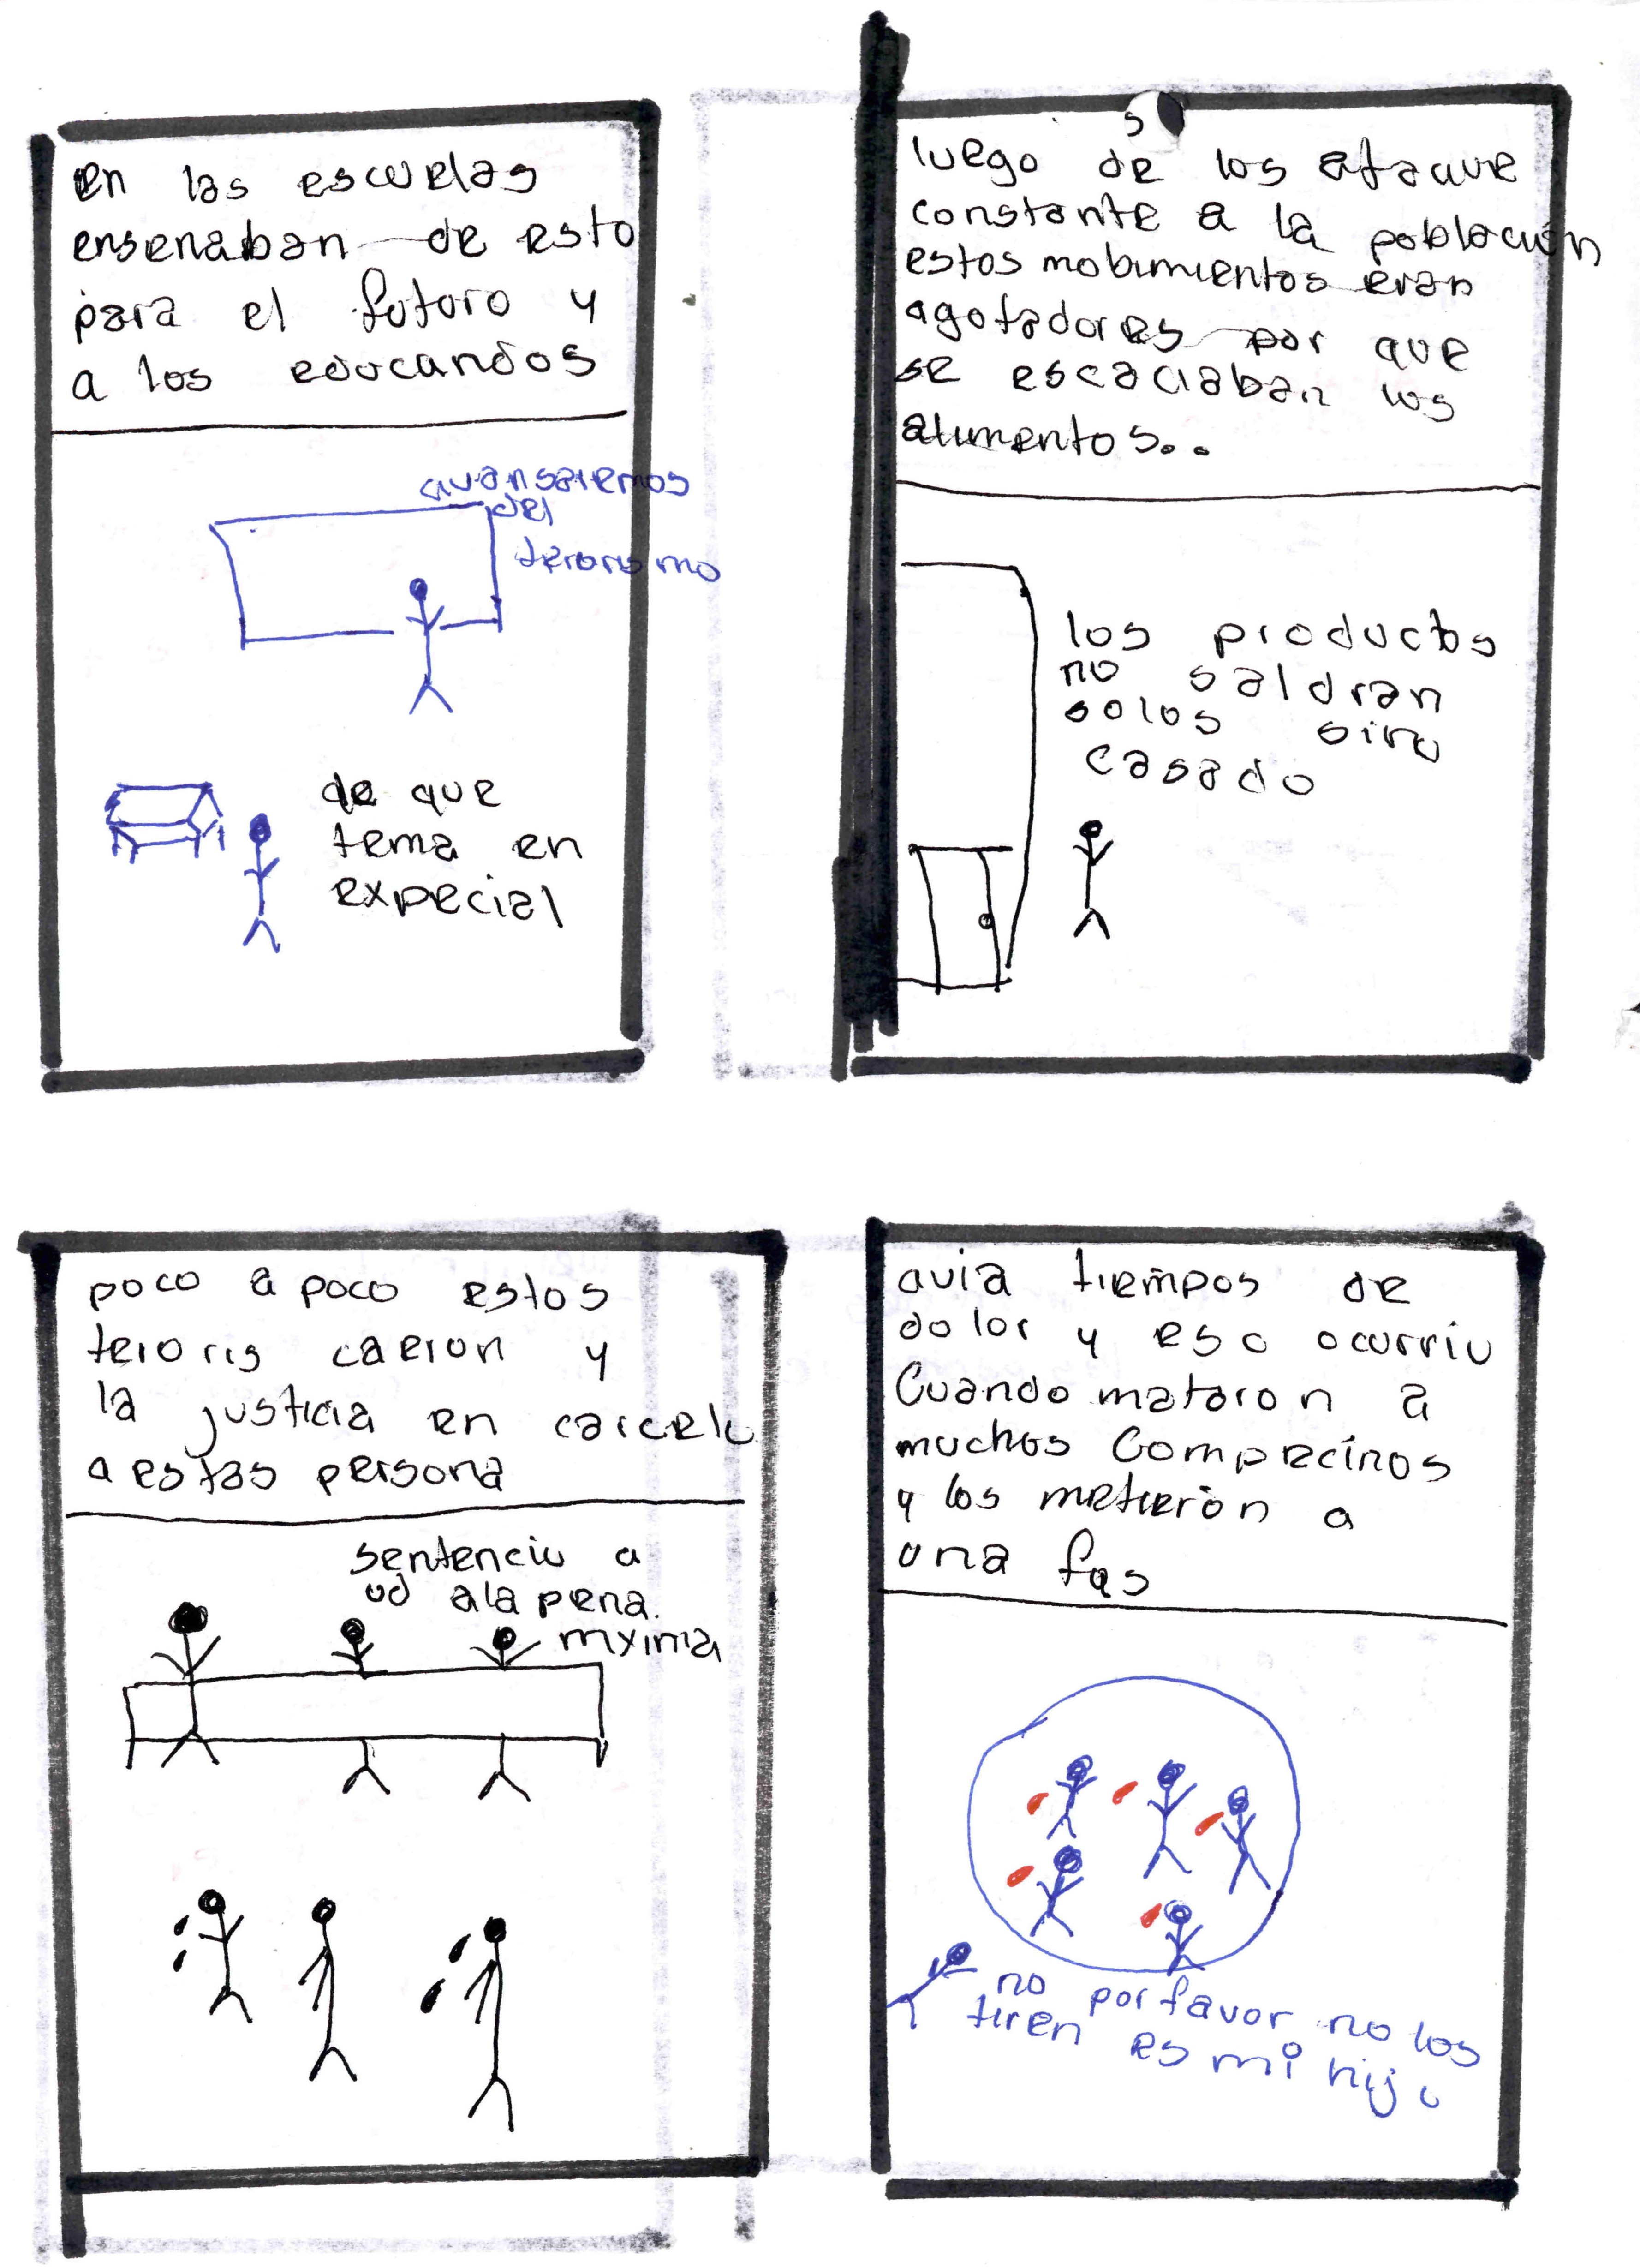 en las escuelas
ensenaban de esto
para el futuro y
a los educandos
avansaremos
del
terorismo
de que
tema en
expecial
s
luego de los ataque
constante a la población
estos mobimientos eran
agotadores por que
se escaciaban los
alimentos...
los productos
no saldran
solos sino
casado
poco a poco estos
teroris caeron y
la justicia en carcelo
a estas persona
sentencio a
ud a la pena.
mxima
avia tiempos de
dolor y eso ocurrio
Cuando mataron a
muchos Compecinos
y los metieron a
una fas
no por favor no los
tiren es mi hijo